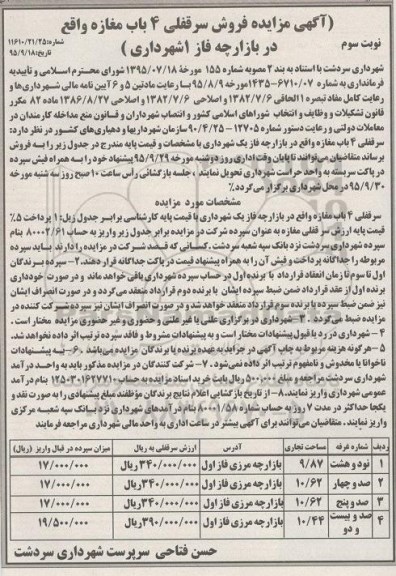 (آگهی مزایده فروش سرقفلی ۴ باب مغازه واقع
در بازارچه فاز ۱شهرداری )
نوبت سوم
شماره:۱۱۶۱۰/۲۱/۲۵
تاریخ:۹۵/۹/۱۸
شهرداری سردشت با استناد به بند ۲ مصوبه شماره ۱۵۵ مورخهٔ ۱۳۹۵/۰۷/۱۸ شورای محترم اسلامی و تاییدیه
فرمانداری به شماره ۶۷۱۰/۰۷-۱۴۳۵مورخه ۹۵/۸/۹ بسا رعایت مادتین ۵ و ۶ آیین نامه مالی شهرداری‌ها و
رعایت کامل مفاد تبصره ۱ الحاقی ۱۳۸۲/۷/۶ و اصلاحی ۱۳۸۲/۷/۶ و اصلاحی ۱۳۸۶/۸/۲۷ ماده ۸۲ مکرر
قانون تشکیلات و وظایف و انتخاب شوراهای اسلامی کشور و انتصاب شهرداران و قانون منع مداخله کارمندان در
معاملات دولتی و رعایت دستور شماره ۱۲۷۰۵-۹۰/۴/۲۵ سازمان شهرداریها و دهیاری‌های کشور در نظر دارد:
سرقفلی ۴ باب مغازه واقع در بازارچه فاز یک شهرداری با مشخصات و قیمت پایه مندرج در جدول زیر را به فروش
برساند متقاضیان می‌توانند تا پایان وقت اداری روز دوشنبه مورخه ۹۵/۹/۲۹ پیشنهاد خود را به همراه فیش سپرده
در پاکت سربسته به واحد حراست شهرداری تحویل نمایند ، جلسه بازگشائی رأس ساعت ۱۰ صبح روز سه شنبه مورخه
۹۵/۹/۳۰ در محل شهرداری برگزار می‌گردد.
مشخصات مورد مزایده
سرقفلی ۴ باب مغازه واقع در بازارچه فاز یک شهرداری با قیمت پایه کارشناسی برابر جدول زیل: ۱ پرداخت ۵٪
قیمت پایه ارزش سر قفلی مغازه به عنوان سپرده شرکت در مزایده برابر جدول زیر واریز به حساب ۸۰۰۰۲/۶۱ بنام
سپرده شهرداری سردشت نزد بانک سپه شعبه سردشت .کسانی که قصد شرکت در مزایده را دارند باید سپرده
مربوطه را جداگانه پرداخت و فیش آن را به همراه پیشنهاد قیمت در پاکت جداگانه قرار دهند. ۲- سپرده برندگان
اول تا سوم تا زمان انعقاد قرارداد با برنده اول در حساب سپرده شهرداری باقی خواهد ماند و در صورت خودداری
برنده اول از عقد قرارداد ضمن ضبط سپرده ایشان با برنده دوم قرارداد منعقد می‌گردد و در صورت انصراف ایشان
نیز ضمن ضبط سپرده با برنده سوم قرارداد منعقد خواهد شد و در صورت انصراف ایشان نیز سپرده شرکت کننده در
مزایده ضبط می‌گردد. ۳- شهرداری در برگزاری علنی یا غیر علنی و حضوری و غیر حضوری مزایده مختار است .
۴- شهرداری در رد یا قبول پیشنهادات مختار است و به پیشنهادات مشروط و فاقد سپرده ترتیب اثر داده نخواهد شد.
۵- هرگونه هزینه مربوطه به چاپ آگهی در جراید به عهده برنده یا برندگان مزایده می‌باشد ۶- به پیشنهادات
ناخوانا یا مخدوش و نامفهوم ترتیب اثر داده نمی‌شود . ۷- شرکت کنندگان در مزایده مذکور باید به واحد درآمد
شهرداری سردشت مراجعه و مبلغ ۵۰۰/۰۰۰ ریال بابت خرید اسناد مزایده به حساب ۱۶۲۷۷۱-۱۲۵۰۳ بنام درآمد
عمومی شهرداری واریز نمایند. ۸- از تاریخ بازگشایی اعلام نتایج برندگان مؤظفند مبلغ پیشنهادی را به صورت نقد و
یکجا حداکثر در مدت ۷ روز به حساب شماره ۸۰۰۰۱/۵۸ بنام درآمدهای شهرداری نزد بانک سپه شعبه مرکزی
واریز نمایند. متقاضیان می‌توانند برای آگاهی بیشتر در ساعات اداری به واحد مالی شهرداری مراجعه فرمایند
ردیف شماره غرفه مساحت تجاری آدرس ارزش سرقفلی به ریال میزان سپرده در قبال واریز (ریال)
۱ نود و هشت ۹/۸۷ بازارچه مرزی فاز اول ۳۴۰/۰۰۰/۰۰۰ریال ۱۷/۰۰۰/۰۰۰
۲ صد و چهار ۱۰/۶۲ بازارچه مرزی فاز اول ۳۴۰/۰۰۰/۰۰۰ریال ۱۷/۰۰۰/۰۰۰
۳ صد و پنج ۱۰/۶۲ بازارچه مرزی فاز اول ۳۴۰/۰۰۰/۰۰۰ریال ۱۷/۰۰۰/۰۰۰
۴ صد و بیست و دو ۱۰/۴۴ بازارچه مرزی فاز اول ۳۹۰/۰۰۰/۰۰۰ریال ۱۹/۵۰۰/۰۰۰
حسن فتاحی سرپرست شهرداری سردشت